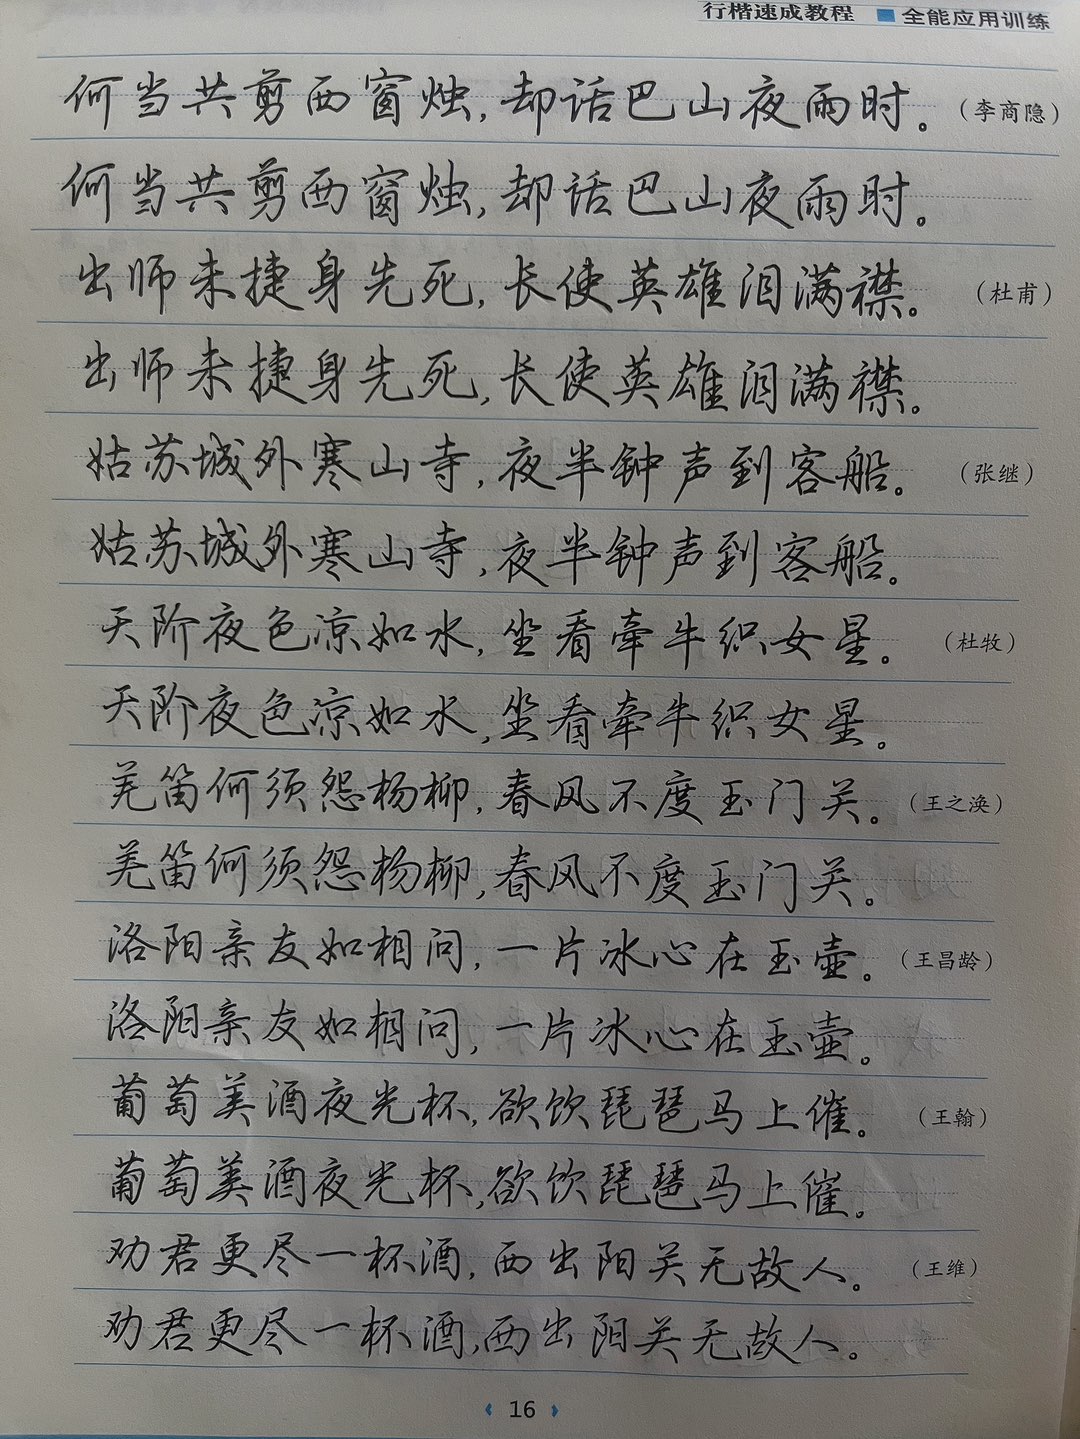 行楷速成教程 全能应用训练
何当共剪西窗烛,却话巴山夜雨时。(李商隐)
何当共剪西窗烛,却话巴山夜雨时。
出师未捷身先死,长使英雄泪满襟。(杜甫)
出师未捷身先死,长使英雄泪满襟。
姑苏城外寒山寺,夜半钟声到客船。(张继)
姑苏城外寒山寺,夜半钟声到客船。
天阶夜色凉如水,坐看牵牛织女星。(杜牧)
天阶夜色凉如水,坐看牵牛织女星。
羌笛何须怨杨柳,春风不度玉门关。(王之涣)
羌笛何须怨杨柳,春风不度玉门关。
洛阳亲友如相问,一片冰心在玉壶。(王昌龄)
洛阳亲友如相问,一片冰心在玉壶。
葡萄美酒夜光杯,欲饮琵琶马上催。(王翰)
葡萄美酒夜光杯,欲饮琵琶马上催。
劝君更尽一杯酒,西出阳关无故人。(王维)
劝君更尽一杯酒,西出阳关无故人。
16